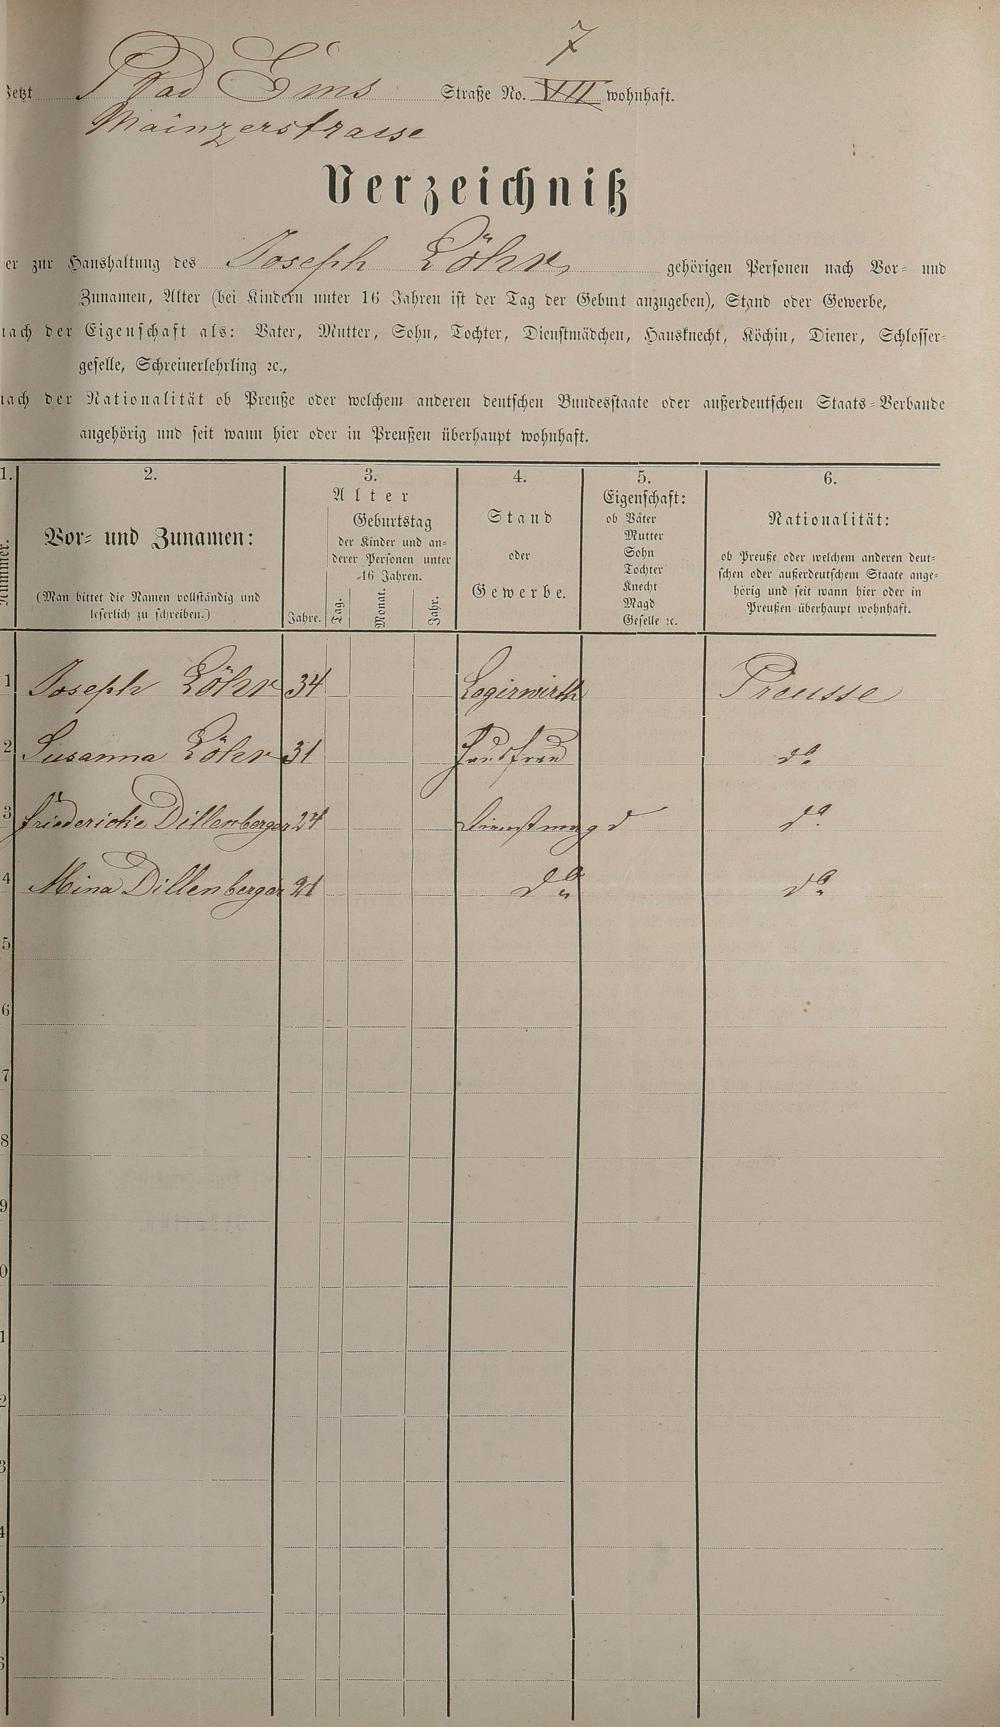 7
Jetzt Bad Ems Straße No. VII wohnhaft.
Mainzerstrasse
Verzeichniß
er zur Haushaltung des Joseph Löhr, gehörigen Personen nach Vor- und
Zunamen, Alter (bei Kindern unter 16 Jahren ist der Tag der Geburt anzugeben), Stand oder Gewerbe,
nach der Eigenschaft als: Vater, Mutter, Sohn, Tochter, Dienstmädchen, Hausknecht, Köchin, Diener, Schlosser-
geselle, Schreinerlehrling ꝛc.,
nach der Nationalität ob Preuße oder welchem anderen deutschen Bundesstaate oder außerdeutschen Staats-Verbande
angehörig und seit wann hier oder in Preußen überhaupt wohnhaft.
1. 2. 3. 4. 5. 6.
Nummer.
Vor- und Zunamen:
(Man bittet die Namen vollständig und
leserlich zu schreiben.)
Alter
Jahre.
Geburtstag
der Kinder und an-
derer Personen unter
16 Jahren.
Tag. Monat. Jahr.
Stand
oder
Gewerbe.
Eigenschaft:
ob Vater
Mutter
Sohn
Tochter
Knecht
Magd
Geselle ꝛc.
Nationalität:
ob Preuße oder welchem anderen deut-
schen oder außerdeutschem Staate ange-
hörig und seit wann hier oder in
Preußen überhaupt wohnhaft.
1 Joseph Löhr 34 Logirwirth Preusse
2 Susanna Löhr 31 Hausfrau do
3 Friedericke Dillenberger 24 Dienstmagd do
4 Mina Dillenberger 21 do do
5
6
7
8
9
0
1
2
3
4
5
6